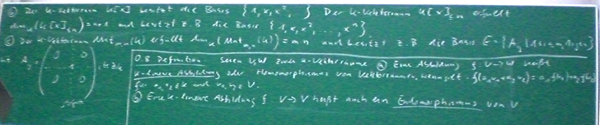 Der K-Vektorraum K[x] besitzt die Basis {1, x, x², }. Der K-Vektorraum K[x]≤n erfüllt
dim_K(K[x]≤n) = n+1 und besitzt z.B. die Basis {1, x, x², ..., xⁿ}
Der K-Vektorraum Mat_{m,n}(K) erfüllt dim_K(Mat_{m,n}(K)) = mn und besitzt z.B. die Basis
0.8 Definition Seien V, W zwei K-Vektorräume. a) Eine Abbildung f: V→W heißt
K-lineare Abbildung oder Homomorphismus von Vektorräumen, wenn gilt
für a₁, a₂ ∈ K und v₁, v₂ ∈ V.
b) Eine K-lineare Abbildung f: V→V heißt auch ein Endomorphismus von V